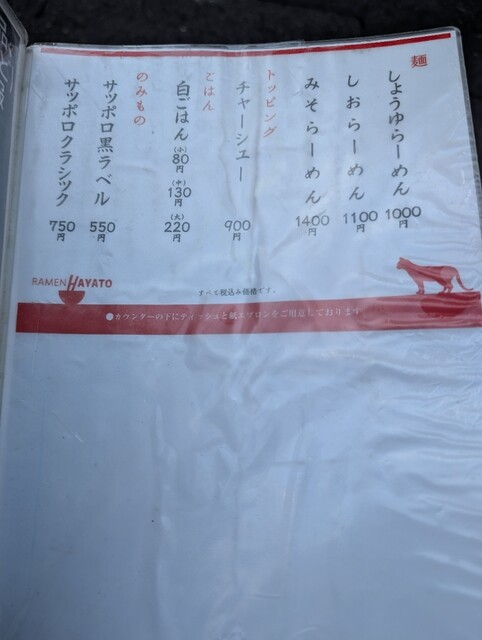 麺
しょうゆらーめん 1000円
しおらーめん 1100円
みそらーめん 1400円
トッピング
チャーシュー 900円
ごはん
白ごはん (小) 80円 (中) 130円 (大) 220円
のみもの
サッポロ黒ラベル 550円
サッポロクラシック 750円
RAMEN HAYATO
すべて税込み価格です。
●カウンターの下にティッシュと紙エプロンをご用意しております